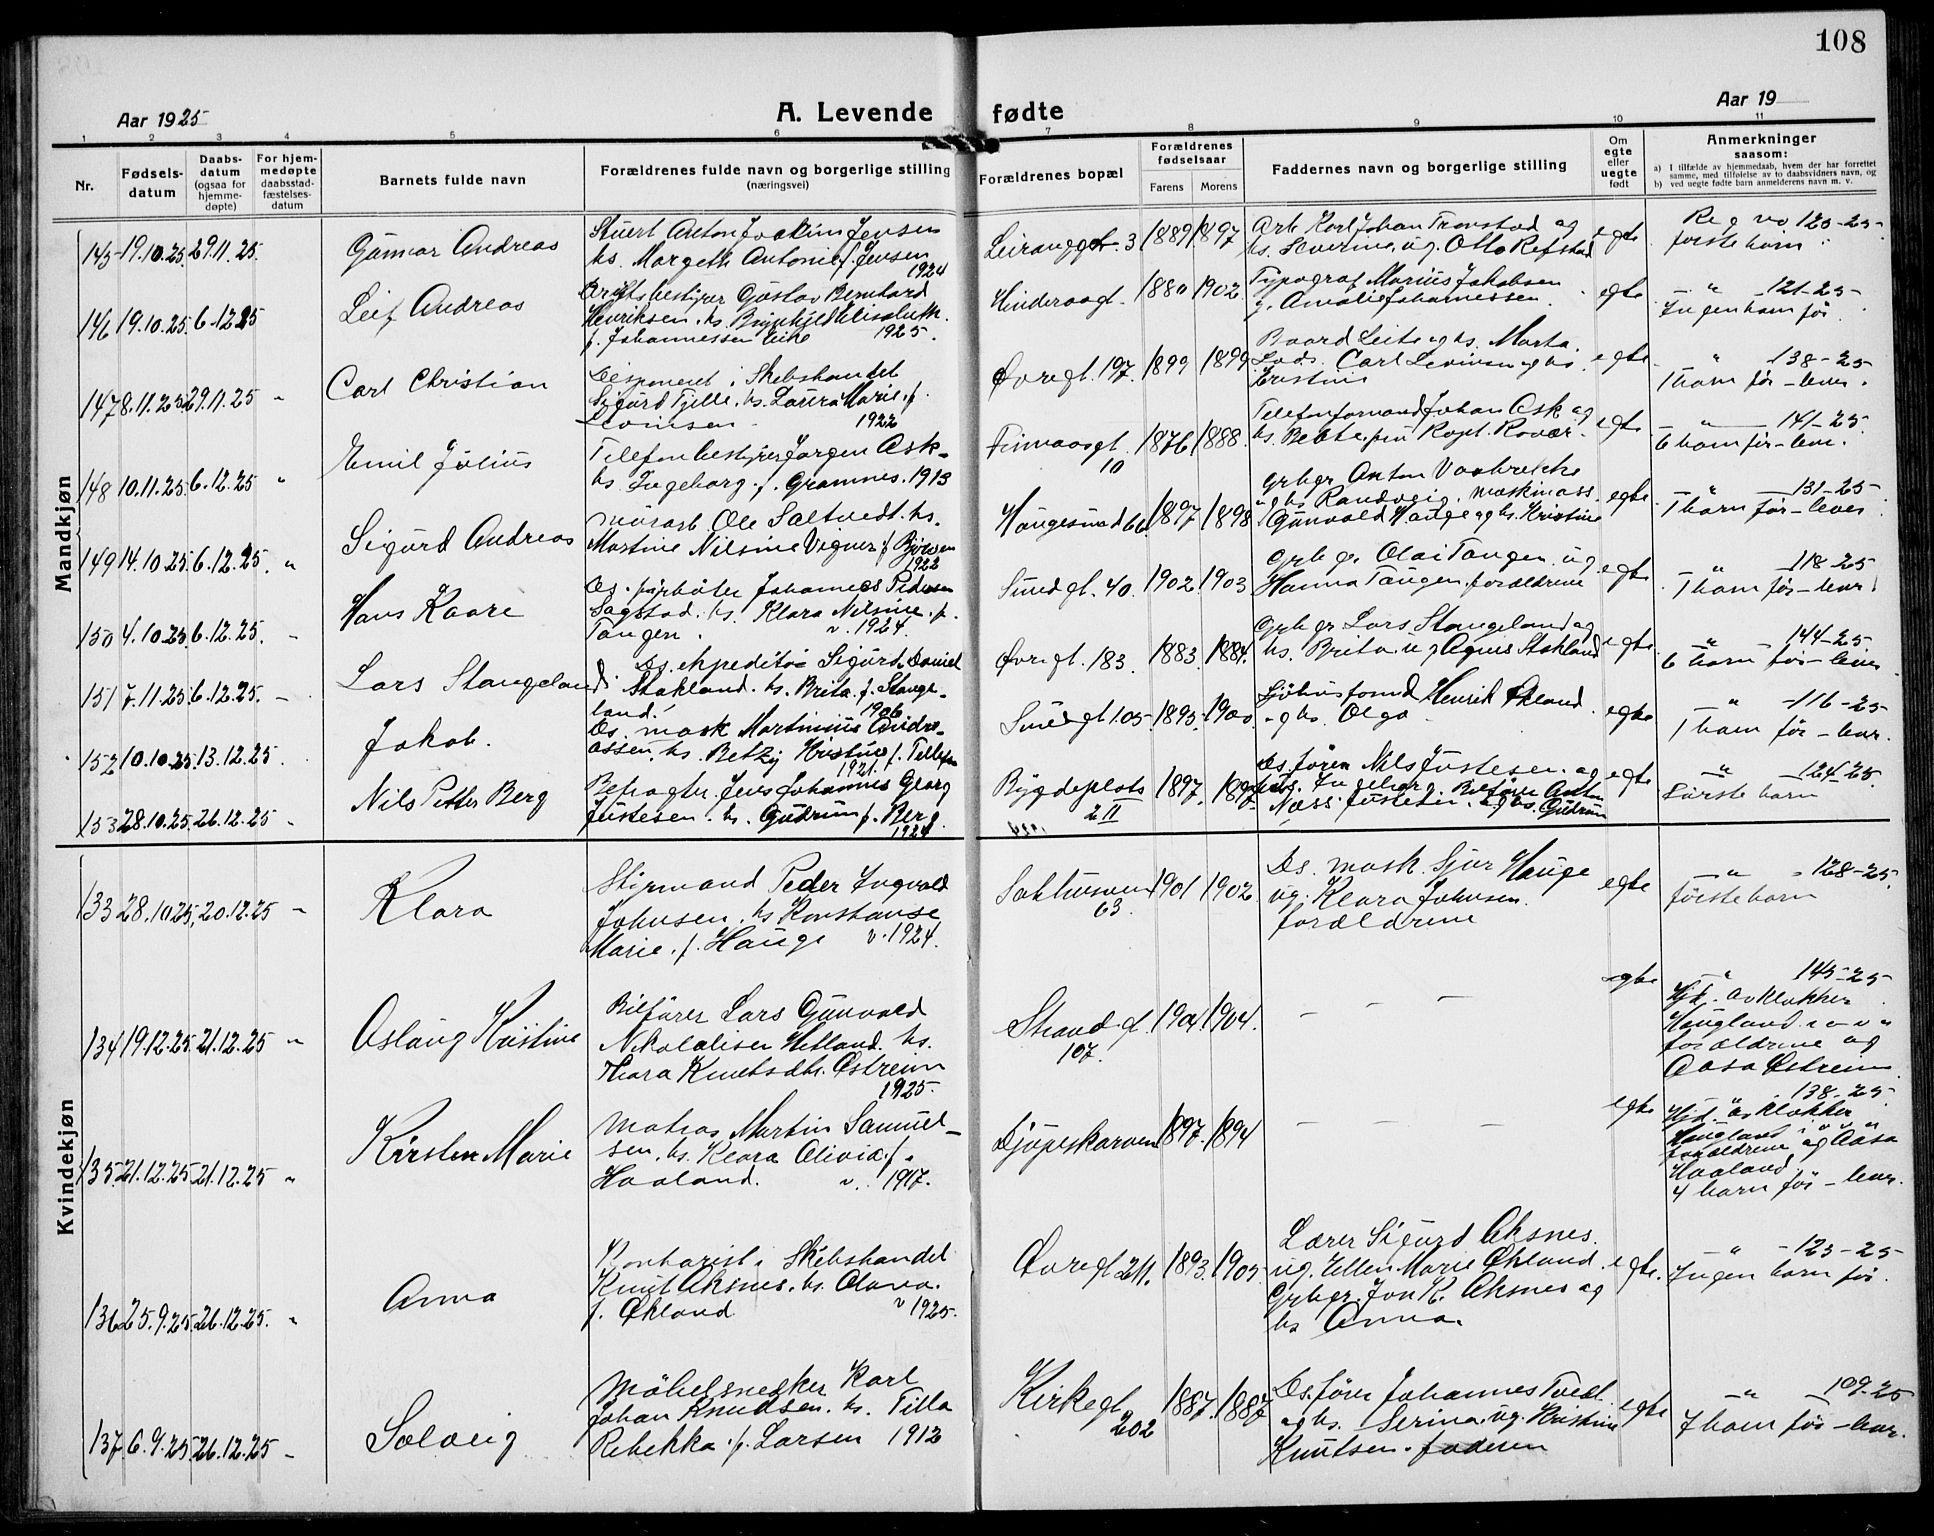 108
Aar 1925
A. Levende fødte
Aar 19
1 2 3 4 5 6 7 8 9 10 11
Nr.
Fødsels-
datum
Daabs-
datum
(ogsaa for
hjemme-
døpte)
For hjem-
medøpte
daabsstad-
fæstelses-
datum
Barnets fulde navn
Forældrenes fulde navn og borgerlige stilling
(næringsvei)
Forældrenes bopæl
Forældrenes
fødselsaar
Farens Morens
Faddernes navn og borgerlige stilling
Om
egte
eller
uegte
født
Anmerkninger
saasom:
a) I tilfælde av hjemmedaab, hvem der har forrettet
samme, med tilføielse av to daabsvidners navn, og
b) ved uegte fødte barn anmelderens navn m. v.
Mandkjøn
145 19.10.25 29.11.25. Gunnar Andreas
Stuert Anton Joakim Jensen
hs. Margeth Antonie f. Jensen
1924
3 1889 1897
Arb. Karl Johan Tronstad og
hs. Severine, ug. Otto Refstad
egte
Reg no 123-25-
første barn
146 19.10.25. 6.12.25 Leif Andreas
Driftsbestyrer Gustav Bernhard
Henriksen. hs. Brynhild Elisabeth
f. Johannessen Eike 1925.
Hinderaagt. 1880 1902
Typograf Marius Jakobsen
g. Amalie Johannessen.
egte
— " — 121-25-
Ingen barn før.
147 8.11.25 29.11.25 " Carl Christian
Disponent i Skibshandel
Sigurd Tjelle. hs. Laura Marie f.
Levinsen 1922
Øvregt. 197. 1899 1899
Baard Leite og hs. Marta.
Lods. Carl Levinsen og hs.
Kristine
egte
" 138-25
1 barn før - lever.
148 10.11.25. 6.12.25 " Emil Julius
Telefonbestyrer Jørgen Ask
hs. Ingeborg. f. Gramnes. 1913
Finnaasgt. 10 1876 1888.
Telefonformand Johan Ask og
hs. Bebte. fru Kapt. Røvær.
egte
— " — 141-25.
6 barn før - lever.
149 14.10.25. 6.12.25. " Sigurd Andreas
Murarb Ole Saltvedt. hs.
Martine Nilsine Vegner f.
1922
66. 1897 1898
grbgr Anton Vaabrekke
og hs Randveig. maskinass.
Gunvald Hauge og hs. Kristine
egte
— " — 131-25-
1 barn før - lever
150 4.10.25. 6.12.25. " Hans Kaare
Ds. fyrbøter Johannes Pedersen
Sagstad. hs. Klara Nilsine. f.
Tangen. v. 1924.
Smedgt. 40. 1902. 1903
Grbgr. Olai Tangen ug
Hanna Tangen. forældrene
egte
" 118-25
1 barn før - lever
151 7.11.25 6.12.25. - Lars Stangeland
Ds. ekspeditør Sigurd Daniel
Stakland. hs. Brita. f. Stange-
land. 1906
Øvregt. 183. 1883. 1884.
Grbgr Lars Stangeland og
hs. Brita ug Agnes Stakland
egte
" 144-25
6 barn før - lever
152 10.10.25. 13.12.25. Jakob.
Ds. mask Martinius Andre-
assen. hs. Betzy Kristine f. Tellefsen
1921.
Smedgt 105. 1893. 1900
Henrik Økland
og hs. Olga
egte
— " — 116-25
1 barn før - lever.
153 28.10.25. 26.12.25 " Nils Petter Berg
Befragter. Jens Johannes Georg
Justesen. hs. Gudrun f. Berg
1924
Bygdeplats 2 II 1897.
Ds. fører Nils Justesen og
hs. Ingeborg. Bilfører Anton
Næss Justesen. og hs. Gudrun
egte
" 124-25.
Første barn
Kvindekjøn
133 28.10.25. 20.12.25 " Klara
Styrmand Peder Ingvald
Johnsen. hs Konstanse
Marie. f. Hauge v. 1924.
63. 1901 1902
Ds. mask. Sjur Hauge
ug. Klara Johnsen.
forældrene
egte
— " — 128-25.
første barn
134 19.12.25. 21.12.25 " Aslaug Kristine
Bilfører Lars Gunvald
Nikolaisen Helland. hs.
Thora Knutsdtr. Østreim
1925.
Strandgt. 107. 1904 1904. — — —
egte
— " 145-25
Hjd. av klokker
Haugland i o v a
forældrene og
Aasa Østreim
135 21.12.25 21.12.25 " Kirsten Marie
Matros Martin Samuel-
sen. hs. Klara Olivia f.
Haaland. v. 1917.
Djupaskarven 1897. 1894 — — —
egte
138-25.
Hjd. av klokker
Haugland i o v a
forældrene og Aasa
Haaland
4 barn før - lever.
136 25.9.25. 26.12.25. " Anna
Kontorist i Skibshandel
Knut Aksnes. hs. Olava.
f. Økland v 1925.
Øvregt 211. 1893. 1905
Lærer Sigurd Aksnes.
ug. Ellen Marie Økland
Grbgr. Jon K. Aksnes og
hs Anna.
egte.
— " — 123-25
Ingen barn før.
137. 6.9.25 26.12.25 " Solveig
Møbelsnedker Karl
Johan Knudsen. hs. Tilla
Rebekka. f. Larsen 1912
Kirkegt. 202 1887. 1887
Ds. fører Johannes Tvedt
og hs. Serina. ug. Kristine
Knutsen. faderen
egte
— " — 109-25
7 barn før - lever.